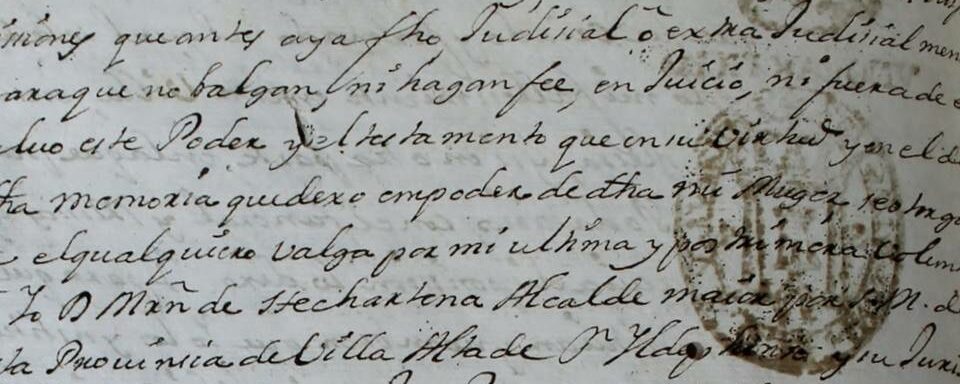 siones que antes aya fho, Judisial ō extra Judisial men
araque no balgan, ni hagan fee, en Juicio, ni fuera de e
lvo este Poder y el testamento que en su Virtud y en el d
tha memoria que dexo em poder de dha mi Muger, se otorga
el qual quiero valga por mi ultima y postrimera Volun
Yo D Mrñ de Hechartena Alcalde maior por S. M. d
ta Provinsia de Villa Alta de Sn Yldephonso y su Juris